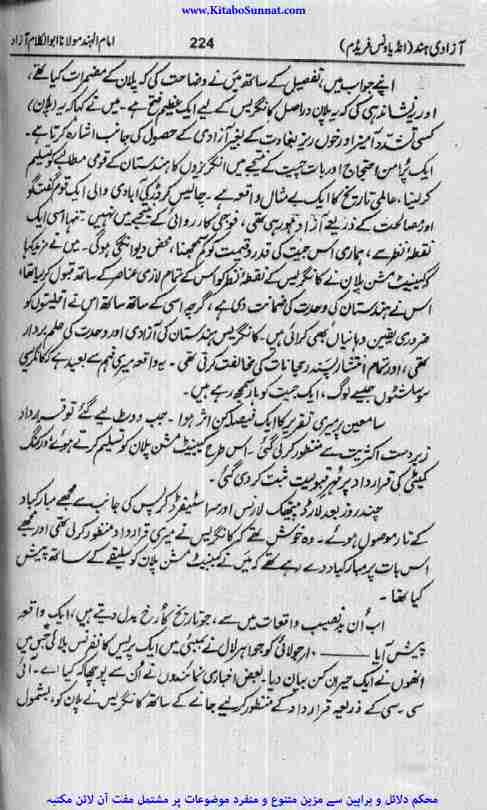 www.KitaboSunnat.com
آزادی ہند (انڈیا ونس فریڈم) 224 امام الہند مولانا ابوالکلام آزاد
اپنے جواب میں، تفصیل کے ساتھ میں نے وضاحت کی کہ پلان کے مضمرات کیا تھے،
اور یہ نشاندہی کی کہ یہ پلان دراصل کانگریس کے لیے ایک عظیم فتح ہے۔ میں نے کہا کہ یہ (پلان)
کسی تشدد آمیز اور خوں ریز بغاوت کے بغیر آزادی کے حصول کی جانب اشارہ کرتا ہے۔
ایک پُرامن احتجاج اور بات چیت کے نتیجے میں انگریزوں کا ہندستان کے قومی مطالبے کو تسلیم
کر لینا، عالمی تاریخ کا ایک بے مثال واقعہ ہے۔ چالیس کروڑ کی آبادی والی ایک قوم گفتگو
اور مصالحت کے ذریعے آزاد ہو رہی تھی، فوجی کارروائی کے نتیجے میں نہیں۔ تنہا اسی ایک
نقطۂ نظر سے، ہماری اس جیت کی قدر و قیمت کو کم سمجھنا، محض دیوانگی ہوگی۔ میں نے مزید کہا
کہ کیبنیٹ مشن پلان نے کانگریس کے نقطۂ نظر کو اس کے تمام لازمی عناصر کے ساتھ قبول کر لیا تھا،
اس نے ہندستان کی وحدت کی ضمانت دی ہے، گرچہ اسی کے ساتھ ساتھ اس نے اقلیتوں کو
ضروری یقین دہانیاں بھی کرائی ہیں۔ کانگریس ہندستان کی آزادی اور وحدت کی علم بردار
تھی، اور تمام انتشار پسند رجحانات کی مخالفت کرتی تھی۔ یہ واقعہ میری فہم سے بعید ہے کہ کانگریسی
سوشلسٹوں جیسے لوگ، ایک جیت کو ہار سمجھ رہے ہیں۔
سامعین پر میری تقریر کا ایک فیصلہ کن اثر ہوا۔ جب ووٹ لیے گئے تو قرارداد
زبردست اکثریت سے منظور کر لی گئی۔ اس طرح کیبنیٹ مشن پلان کو تسلیم کرتے ہوئے ورکنگ
کمیٹی کی قرارداد پر مُہرِ قبولیت ثبت کر دی گئی۔
چند روز بعد لارڈ پیتھک لارنس اور سر اسٹیفرڈ کرپس کی جانب سے مجھے مبارکباد
کے تار موصول ہوئے۔ وہ خوش تھے کہ کانگریس نے میری قرارداد منظور کر لی تھی اور مجھے
اس بات پر مبارکباد دے رہے تھے کہ میں نے کیبنیٹ مشن پلان کو سلیقے کے ساتھ پیش
کیا تھا۔
اب اُن بدنصیب واقعات میں سے، جو تاریخ کا رُخ بدل دیتے ہیں، ایک واقعہ
پیش آیا — ۱۰ جولائی کو جواہر لال نے بمبئی میں ایک پریس کانفرنس بلائی جس میں
انھوں نے ایک حیران کن بیان دیا۔ بعض اخباری نمائندوں نے اُن سے پوچھا کہ کیا اے۔ آئی
سی۔ سی کے ذریعہ قرارداد کے منظور کر لیے جانے کے ساتھ کانگریس نے پلان کو، بشمول
محکم دلائل و براہین سے مزین متنوع و منفرد موضوعات پر مشتمل مفت آن لائن مکتبہ